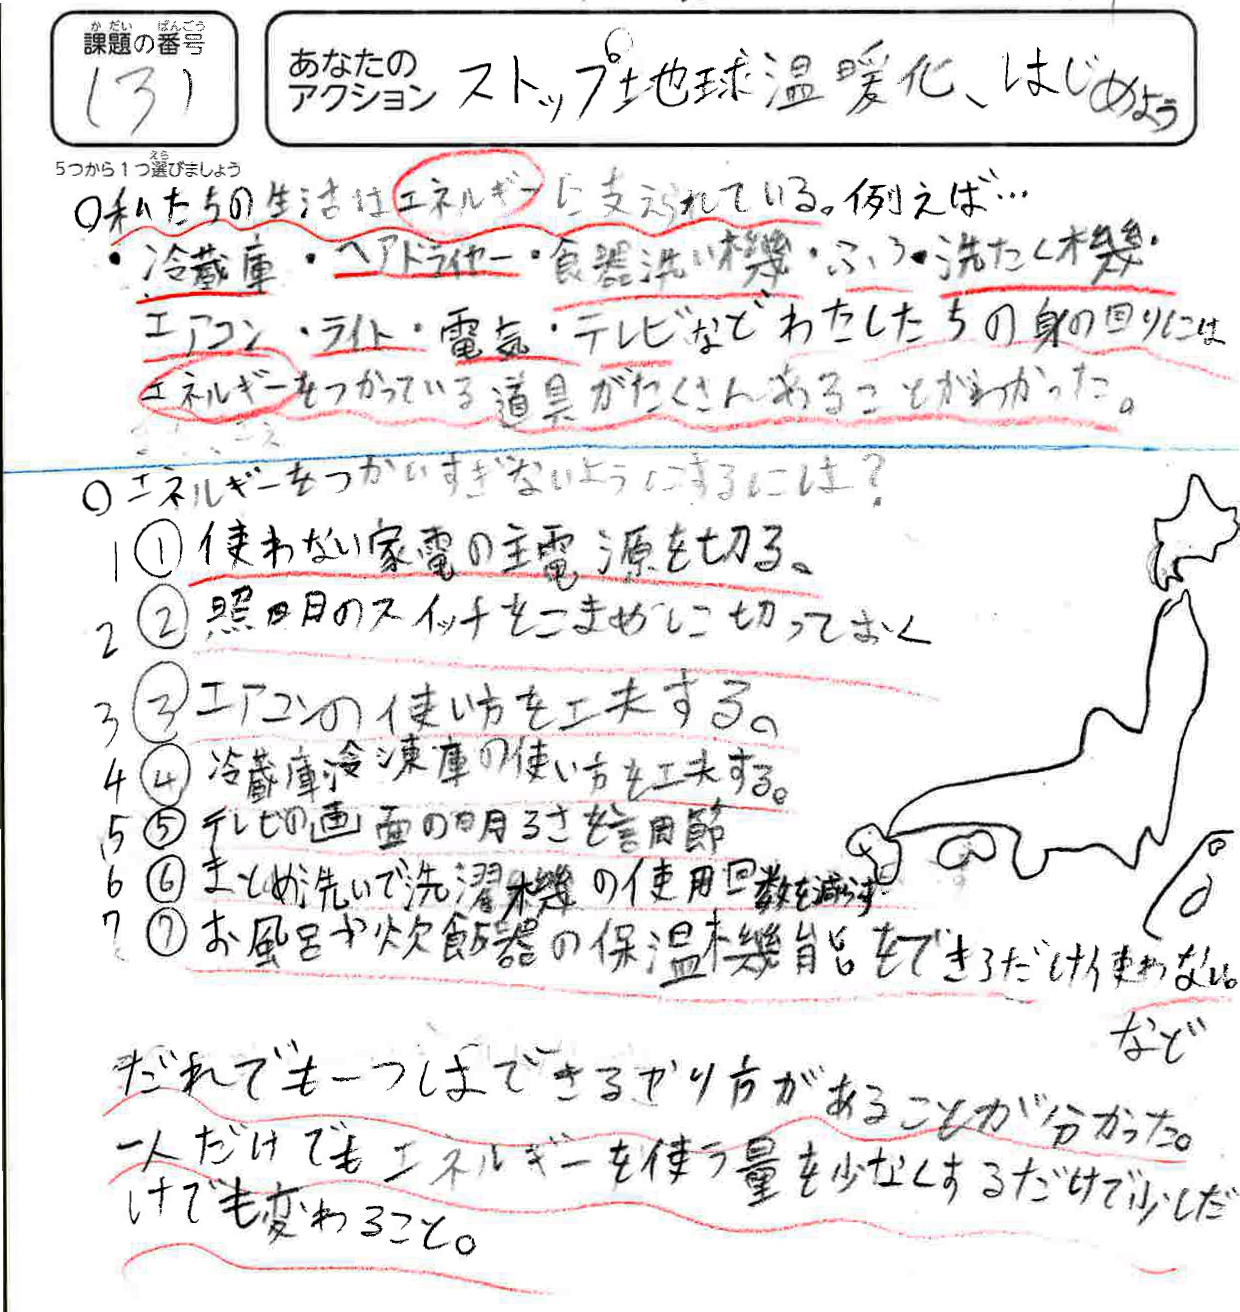 かだい ばんごう
課題の番号
(3)
あなたの
アクション
ストップ地球温暖化、はじめよう
えら
5つから1つ選びましょう
○私たちの生活はエネルギーに支えられている。例えば…
・冷蔵庫・ヘアドライヤー・食器洗い機・ふろ・洗たく機・
エアコン・ライト・電気・テレビなどわたしたちの身の回りには
エネルギーをつかっている道具がたくさんあることがわかった。
○エネルギーをつかいすぎないようにするには?
1 ① 使わない家電の主電源を切る。
2 ② 照明のスイッチをこまめに切っておく
3 ③ エアコンの使い方を工夫する。
4 ④ 冷蔵庫冷凍庫の使い方を工夫する。
5 ⑤ テレビの画面の明るさを調節
6 ⑥ まとめ洗いで洗濯機の使用回数を減らす
7 ⑦ お風呂や炊飯器の保温機能をできるだけ使わない。
など
だれでも一つはできるやり方があることが分かった。
一人だけでもエネルギーを使う量を少なくするだけで少しだ
けでも変わること。